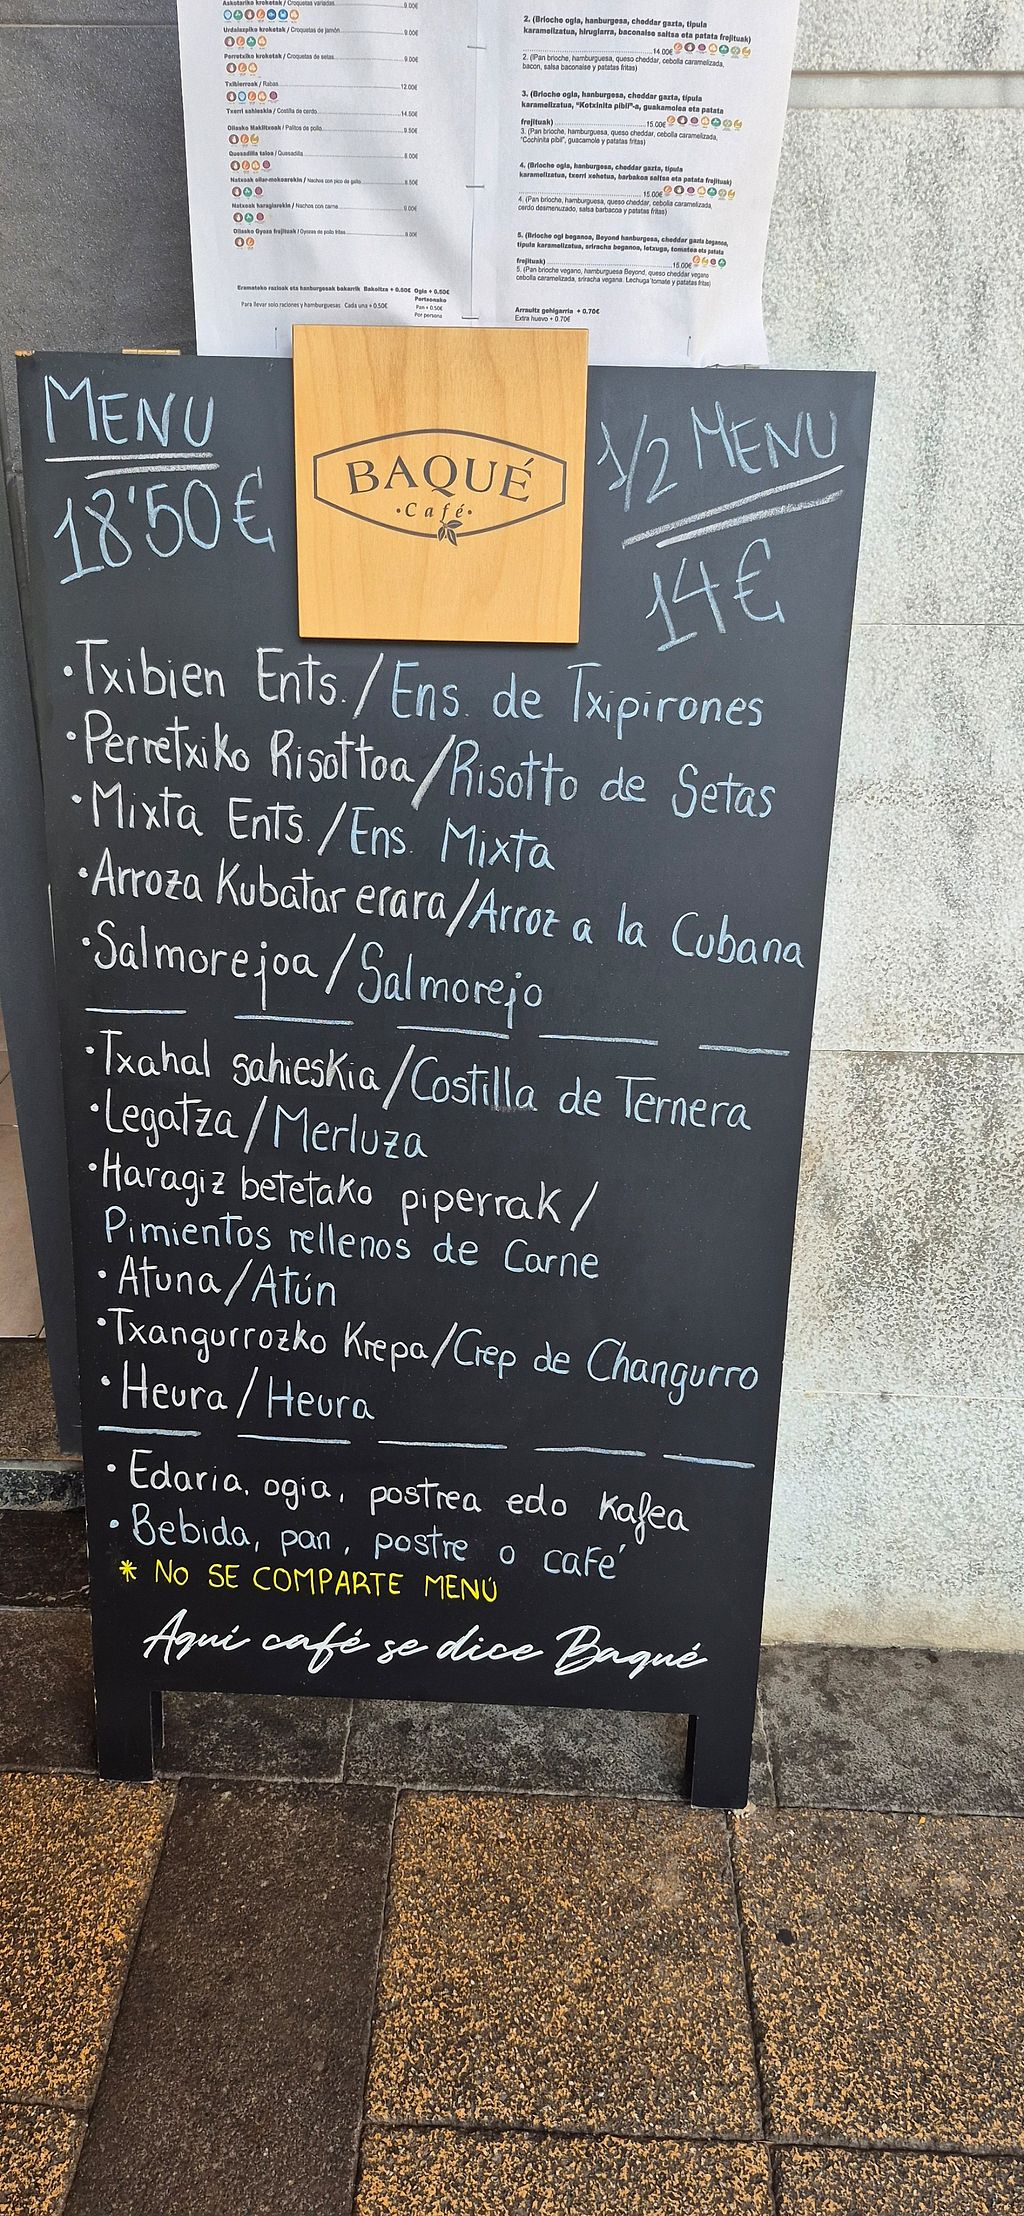 Askotariko kroketak / Croquetas variadas 9.00€
Urdaiazpiko kroketak / Croquetas de jamón 9.00€
Perretxiko kroketak / Croquetas de setas 9.00€
Txibierroak / Rabas 12.00€
Txerri sahieskia / Costilla de cerdo 14.50€
Oilasko Makiltxoak / Palitos de pollo 9.50€
Quesadilla taloa / Quesadilla 8.00€
Natxoak oilar-mokoarekin / Nachos con pico de gallo 8.50€
Natxoak haragiarekin / Nachos con carne 9.00€
Oilasko Gyoza frejituak / Gyozas de pollo fritas 8.00€
Eramateko razioak eta hanburgesak bakarrik Bakoitza + 0.50€ Ogia + 0.50€
Pertsonako
Para llevar solo raciones y hamburguesas Cada una + 0.50€ Pan + 0.50€
Por persona
2. (Brioche ogia, hanburgesa, cheddar gazta, tipula
karamelizatua, hirugiarra, baconaise saltsa eta patata frejituak)
14.00€
2. (Pan brioche, hamburguesa, queso cheddar, cebolla caramelizada,
bacon, salsa baconaise y patatas fritas)
3. (Brioche ogia, hanburgesa, cheddar gazta, tipula
karamelizatua, "Kotxinita pibil"-a, guakamolea eta patata
frejituak) 15.00€
3. (Pan brioche, hamburguesa, queso cheddar, cebolla caramelizada,
"Cochinita pibil", guacamole y patatas fritas)
4. (Brioche ogia, hanburgesa, cheddar gazta, tipula
karamelizatua, txerri xehetua, barbakoa saltsa eta patata frejituak)
15.00€
4. (Pan brioche, hamburguesa, queso cheddar, cebolla caramelizada,
cerdo desmenuzado, salsa barbacoa y patatas fritas)
5. (Brioche ogi beganoa, Beyond hanburgesa, cheddar gazta beganoa,
tipula karamelizatua, sriracha beganoa, letxuga, tomatea eta patata
frejituak) 15.00€
5. (Pan brioche vegano, hamburguesa Beyond, queso cheddar vegano
cebolla caramelizada, sriracha vegana. Lechuga tomate y patatas fritas)
Arraultz gehigarria + 0.70€
Extra huevo + 0.70€
MENU
18'50€
BAQUÉ
·Café·
1/2 MENU
14€
·Txibien Ents./Ens. de Txipirones
·Perretxiko Risottoa/Risotto de Setas
·Mixta Ents./Ens. Mixta
·Arroza Kubatar erara/Arroz a la Cubana
·Salmorejoa/Salmorejo
·Txahal sahieskia/Costilla de Ternera
·Legatza/Merluza
·Haragiz betetako piperrak/
Pimientos rellenos de Carne
·Atuna/Atún
·Txangurrozko Krepa/Crep de Changurro
·Heura/Heura
·Edaria, ogia, postrea edo kafea
·Bebida, pan, postre o café
* NO SE COMPARTE MENÚ
Aquí café se dice Baqué